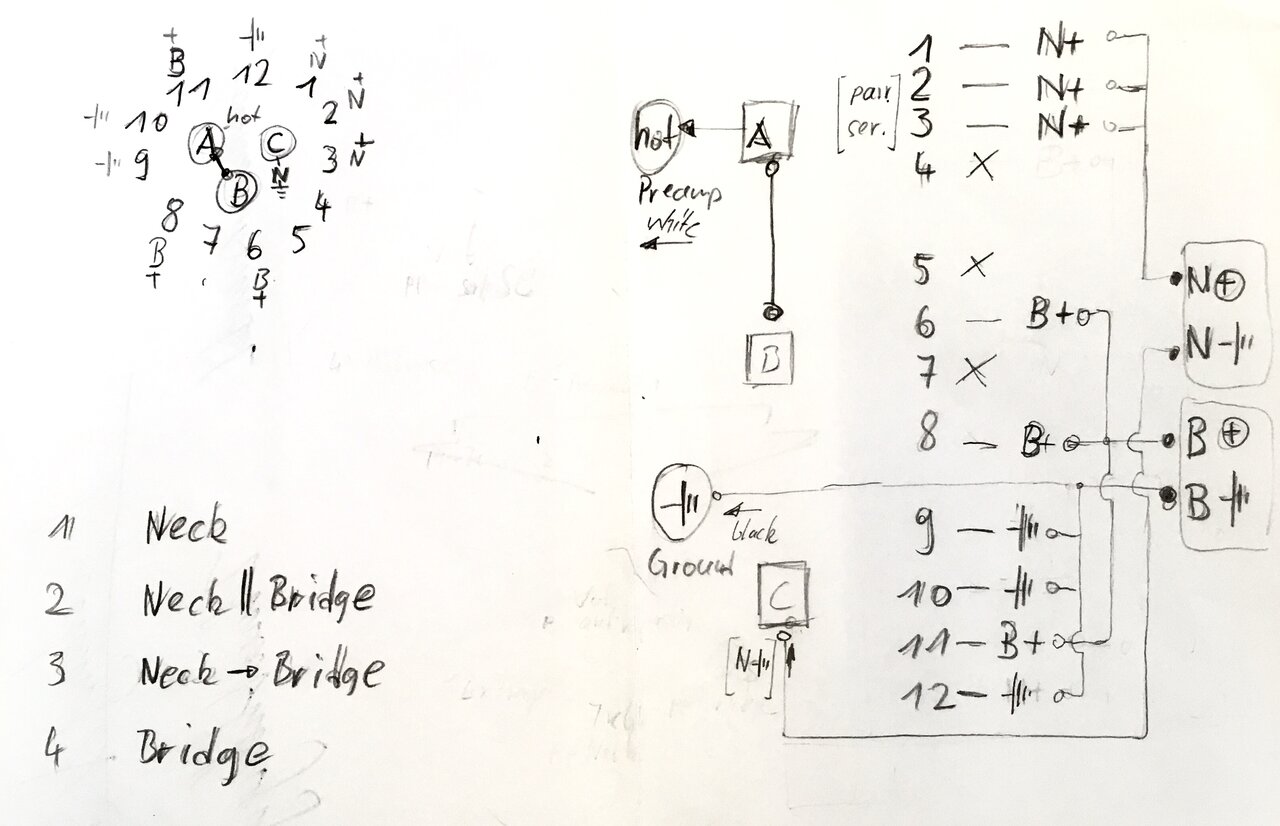 +
B
12
+
N
11
1
+
N
2
10
hot
A
C
9
3
N
+
N
B
8
4
7
6
5
B
+
B
+
1 Neck
2 Neck || Bridge
3 Neck → Bridge
4 Bridge
hot
A
Preamp
white
B
Ground
black
C
[N-]
1 — N+
[pair. ser.]
2 — N+
3 — N+
4 X B+
5 X
6 — B+
7 X
8 — B+
9 —
10 —
11 — B+
12 —
N +
N -
B +
B -